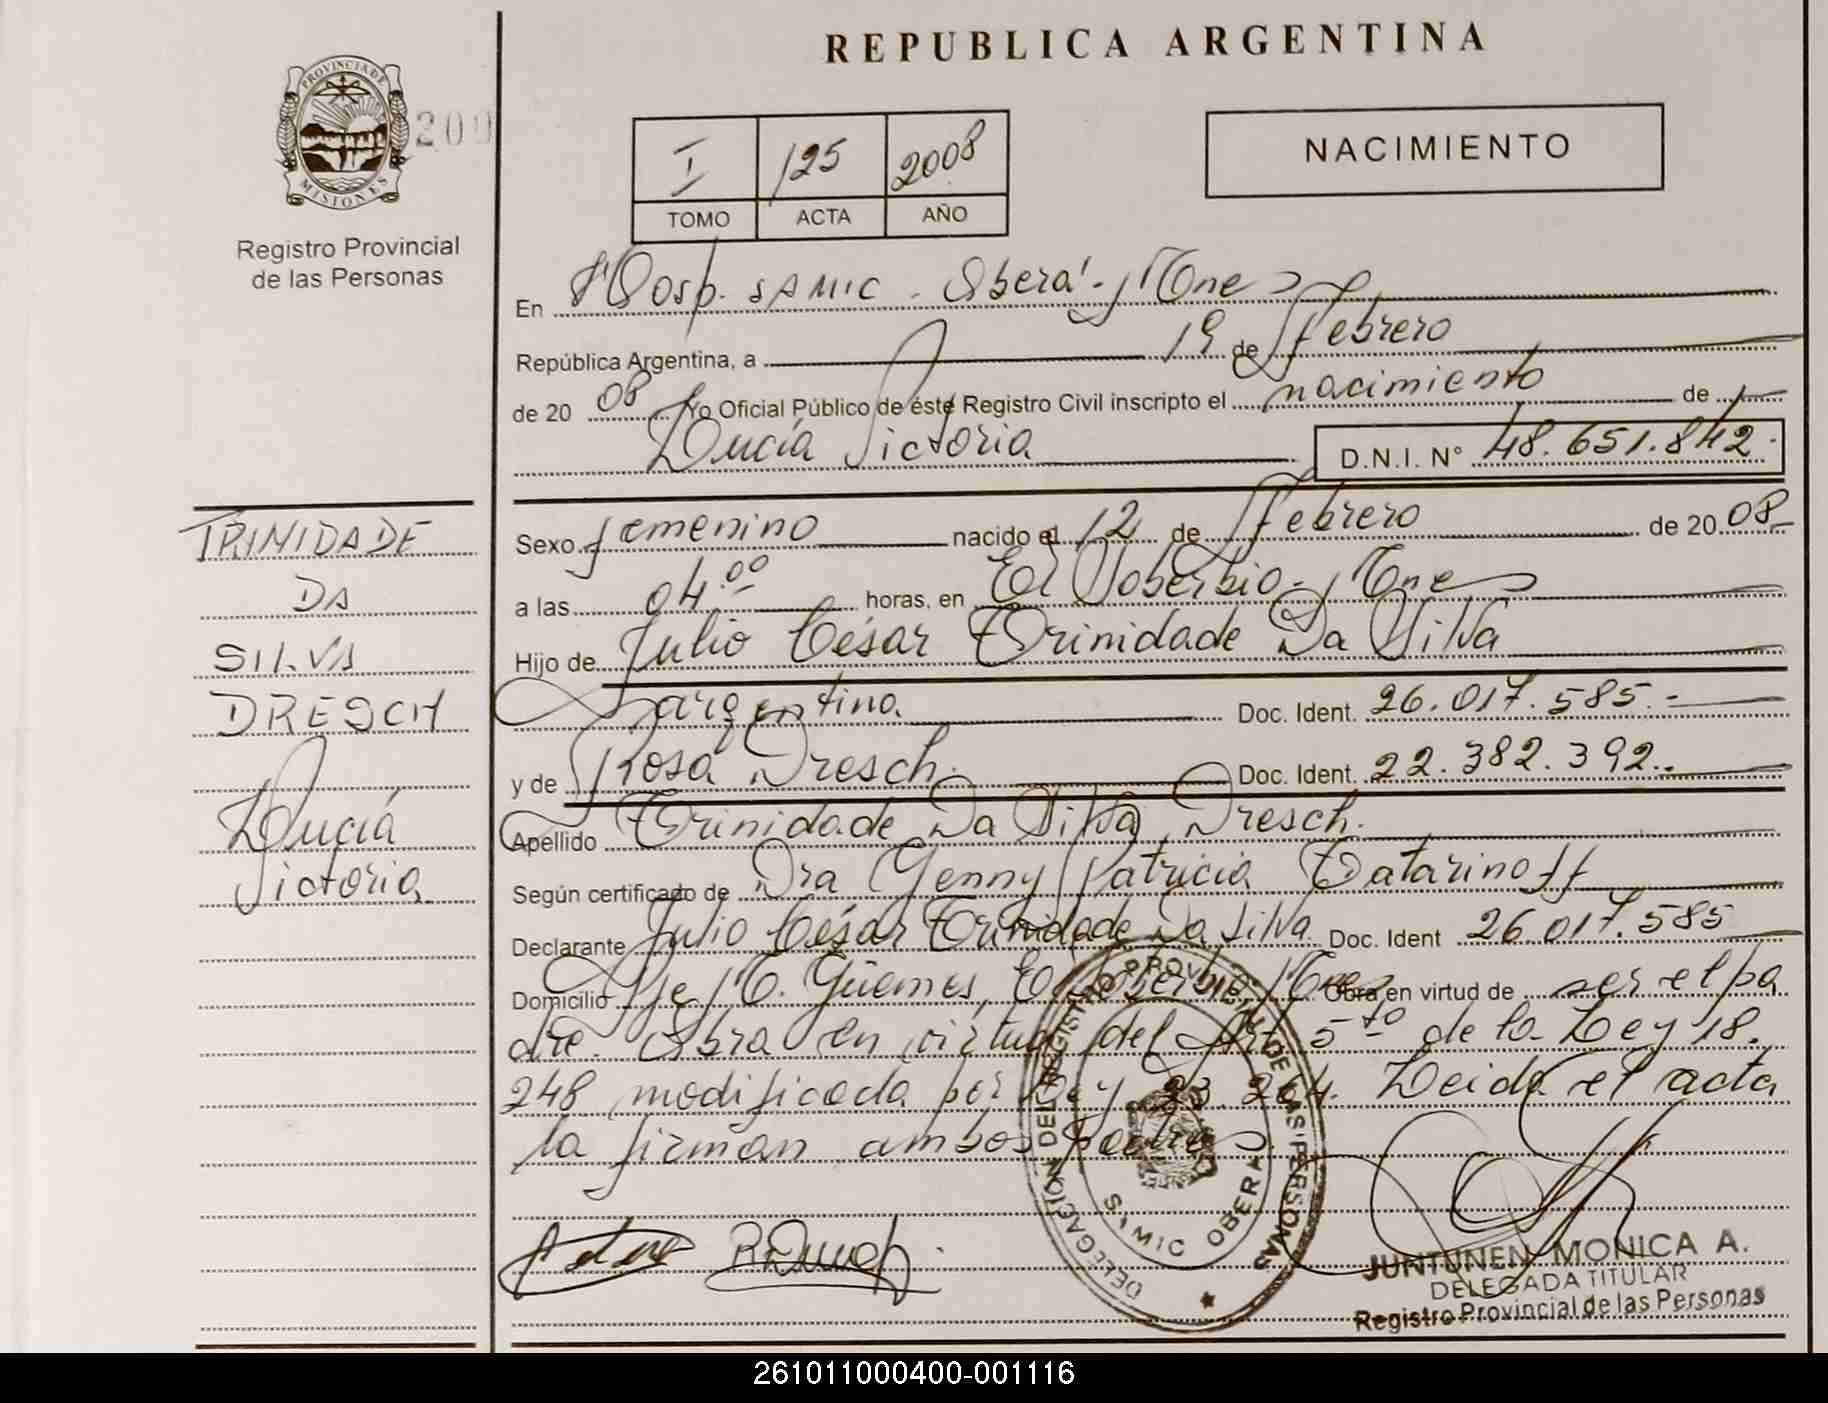 REPUBLICA ARGENTINA
PROVINCIA DE
MISIONES
209
Registro Provincial
de las Personas
I 125 2008
TOMO ACTA AÑO
NACIMIENTO
En Hosp. SAMIC - Oberá - Mnes
República Argentina, a 19 de Febrero
de 20 08 Yo Oficial Público de éste Registro Civil inscripto el nacimiento de
Lucía Victoria D.N.I. N° 48.651.842.
TRINIDADE
DA
SILVA
DRESCH
Lucía
Victoria
Sexo femenino nacido el 12 de Febrero de 20 08
a las 04 00 horas, en El Soberbio - Mnes
Hijo de Julio César Trinidade Da Silva
argentina Doc. Ident. 26.017.585.-
y de Rosa Dresch. Doc. Ident. 22.382.392.
Apellido Trinidade Da Silva Dresch.
Según certificado de Dra Genny Patricia Tatarinoff
Declarante Julio César Trinidade Da Silva Doc. Ident 26.017.585
Domicilio M. Güemes, El Soberbio, Mnes Obra en virtud de ser el pa
dre. Obra en virtud del Art 5to de la Ley 18.
248 modificada por Ley 23.264. Leida el acta
la firman ambos padres.
DELEGACIÓN DEL REGISTRO PROVINCIAL DE LAS PERSONAS
SAMIC OBERA
JUNTUNEN MONICA A.
DELEGADA TITULAR
Registro Provincial de las Personas
261011000400-001116